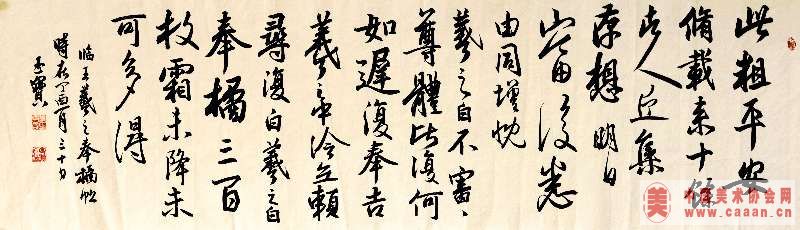 此粗平安
脩載来十餘
諸人近集
存想 明日
當復悉
由同增慨
羲之白不審〻
尊體比復何
如遲復奉告
羲之中冷無賴
尋復白羲之白
奉橘三百
枚霜未降未
可多得
临王羲之奉橘帖
時在丁酉月三十日
美
美术协会网
www.caaan.cn